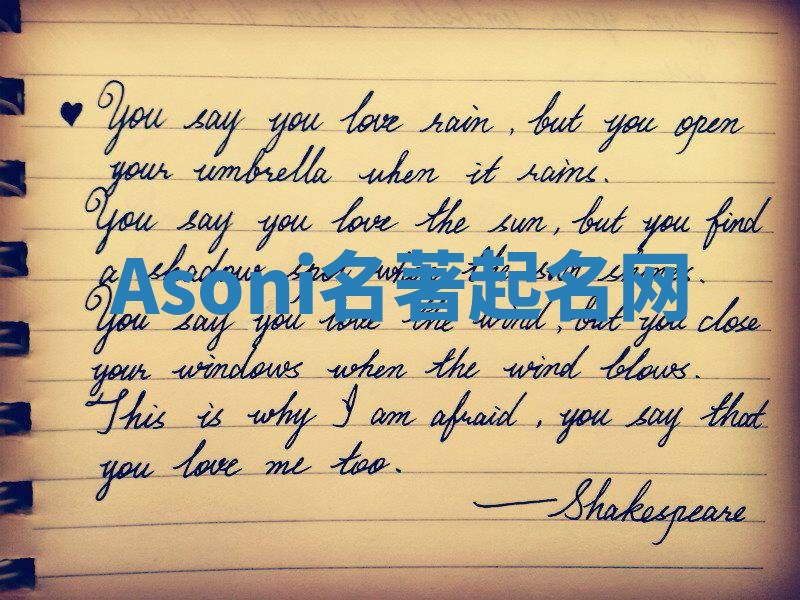 ♥ You say you love rain, but you open
your umbrella when it rains.
You say you love the sun, but you find
a shadow spot when the sun shines.
Asoni名著起名网
You say you love the wind, but you close
your windows when the wind blows.
This is why I am afraid, you say that
you love me too.
—Shakespeare